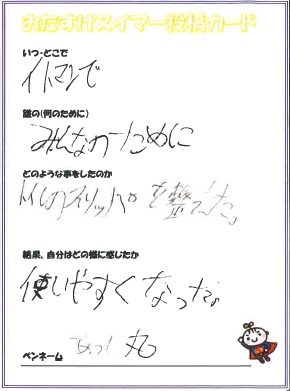 おたすけスイマー投稿カード
いつ・どこで
イトマンで
誰の(何のために)
みんなのために
どのような事をしたのか
トイレのスリッパを整えた。
結果、自分はどの様に感じたか
使いやすくなった。
ペンネーム
丸